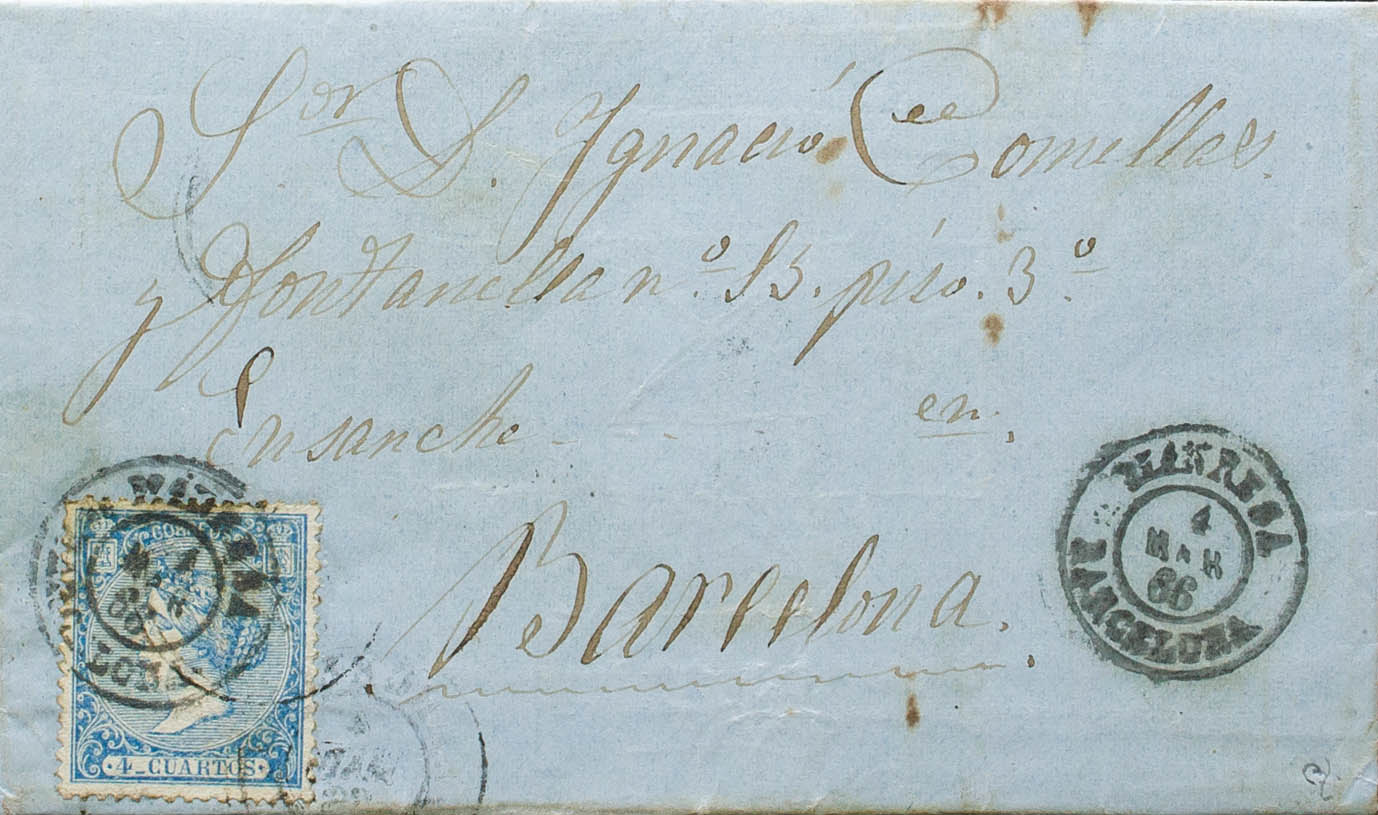 Sor D. Ignació Comellas.
y Fontanella nº 13. piso. 3º
Ensanche - - en.
Barcelona.
MANRESA
4
MAR
66
BARCELONA
CORREOS
4_CUARTOS